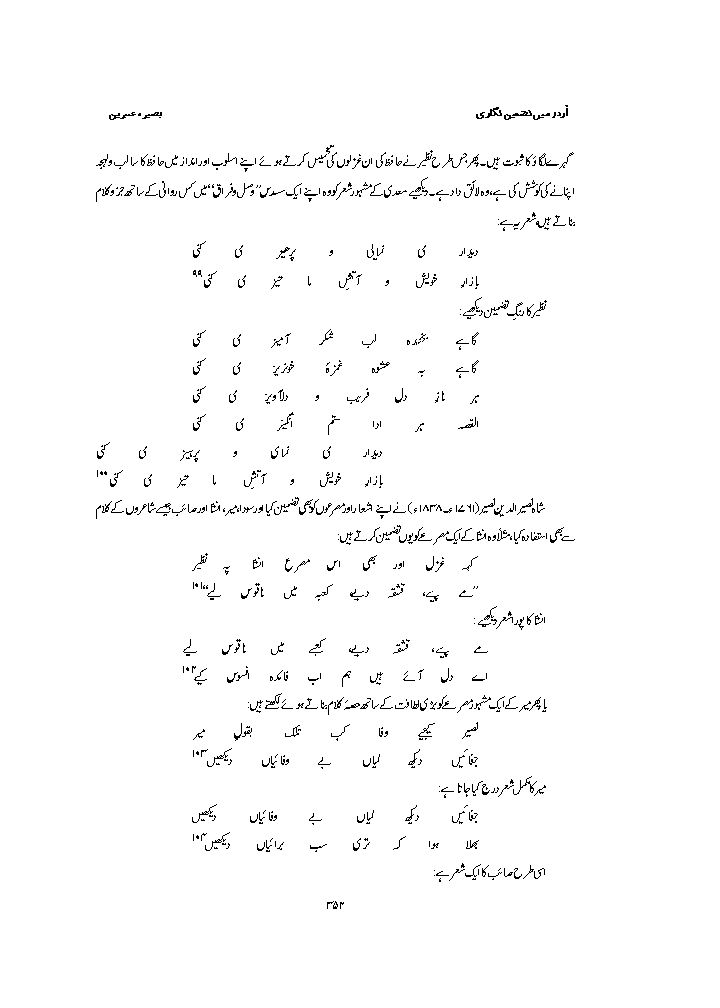 اُردو میں تضمین نگاری
بصیرہ عنبرین
گہرے لگاؤ کا ثبوت ہیں۔ پھر جس طرح نظیر نے حافظ کی ان غزلوں کی تخمیس کرتے ہوئے اپنے اسلوب اور انداز میں حافظ کا سا لب ولہجہ
اپنانے کی کوشش کی ہے، وہ لائق داد ہے۔ دیکھیے سعدی کے مشہور شعر کو وہ اپنے ایک مسدس ”وصل و فراق“ میں کس روانی کے ساتھ جزوِ کلام
بناتے ہیں، شعر یہ ہے:
دیدار می نمائی و پرھیز می کنی
بازار خویش و آتشِ ما تیز می کنی۹۹
نظیر کا رنگِ تضمین دیکھیے:
گاہے بخندہ لب شکر آمیز می کنی
گاہے بہ عشوہ غمزۂ خونریز می کنی
ہر ناز دل فریب و دلآویز می کنی
القصہ ہر ادا ستم انگیز می کنی
دیدار می نمای و پرہیز می کنی
بازار خویش و آتشِ ما تیز می کنی۱۰۰
شاہ نصیر الدین نصیر (۱۷۶۱ء۔۱۸۳۸ء) نے اپنے اشعار اور مصرعوں کو بھی تضمین کیا اور سودا، میر، انشا اور صائب جیسے شاعروں کے کلام
سے بھی استفادہ کیا، مثلاً وہ انشا کے ایک مصرعے کو یوں تضمین کرتے ہیں:
کہہ غزل اور بھی اس مصرع انشا پہ نظیر
”مے پیے، قشقہ دیے کعبہ میں ناقوس لیے“۱۰۱
انشا کا پورا شعر دیکھیے:
مے پیے، قشقہ دیے، کعبے میں ناقوس لیے
اے دل آئے ہیں ہم اب فائدہ افسوس کیے۱۰۲
یا پھر میر کے ایک مشہور مصرعے کو بڑی لطافت کے ساتھ حصۂ کلام بناتے ہوئے لکھتے ہیں:
نصیر کیجیے وفا کب تلک بقولِ میر
جفائیں دیکھ لیاں بے وفائیاں دیکھیں۱۰۳
میر کا مکمل شعر درج کیا جاتا ہے:
جفائیں دیکھ لیاں بے وفائیاں دیکھیں
بھلا ہوا کہ تری سب برائیاں دیکھیں۱۰۴
اسی طرح صائب کا ایک شعر ہے:
۳۵۲